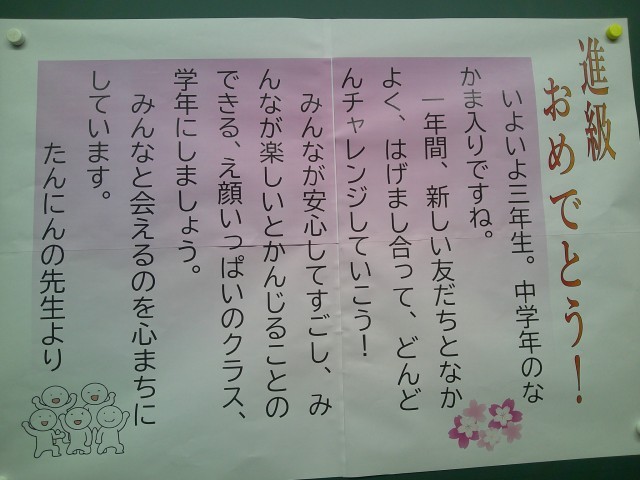 進級
おめでとう！
いよいよ三年生。中学年のな
かま入りですね。
一年間、新しい友だちとなか
よく、はげまし合って、どんど
んチャレンジしていこう！
みんなが安心してすごし、み
んなが楽しいとかんじることの
できる、え顔いっぱいのクラス、
学年にしましょう。
みんなと会えるのを心まちに
しています。
たんにんの先生より